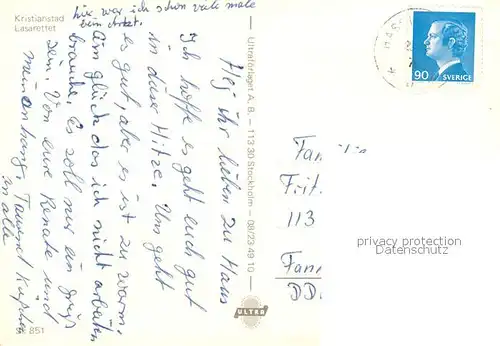 Kristianstad
Lasarettet
hier war ich schon viele male
beim Arzt.
Hej ihr lieben zu Haus
Ich hoffe es geht euch gut
in dieser Hitze. Uns geht
es gut, aber es ist zu warm.
Ein glück das ich nicht arbeiten
brauche. Es soll nur ein gruß
sein. Von eure Renate und
anhang. Tausend Küsschen
an alle
SK 851
Ultraförlaget A. B. — 113 30 Stockholm — 08/23 49 10
ULTRA
90
SVERIGE
Fam
Frit
113
privacy protection
Datenschutz
Fann
DD